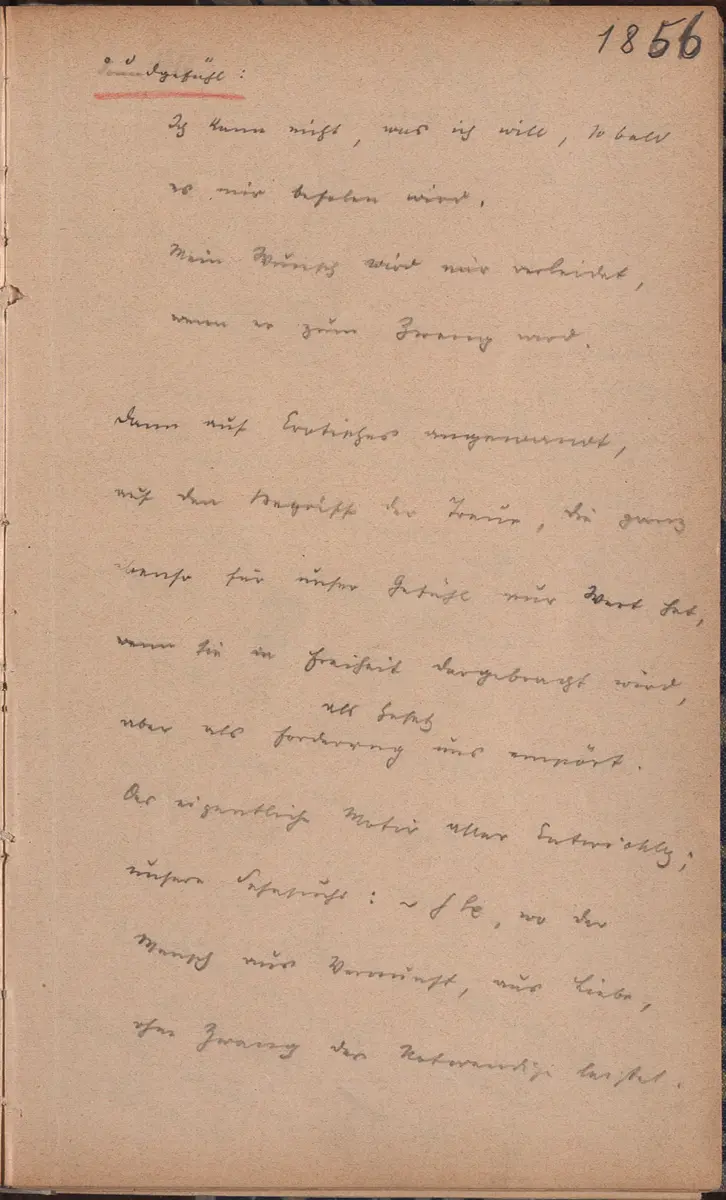 1856
Grundgefühl:
Ich kann nicht, was ich will, so bald
es mir befolen wird.
Mein Wunsch wird mir verleidet,
wenn er zum Zwang wird.
Dann auf Erotisches angewandt,
auf den Begriff der Treue, die ganz
ebenso für unser Gefühl nur Wert hat,
wenn sie in Freiheit dargebracht wird,
als Gesetz
aber als Forderung uns empört.
Das eigentliche Motiv aller Entwicklg;
unsere Sehnsucht: wo der
Mensch aus Vernunft, aus Liebe,
ohne Zwang das Notwendige leistet.